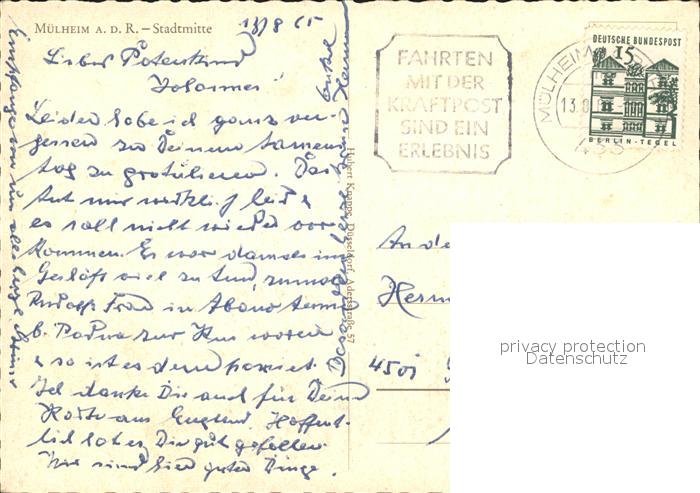 MÜLHEIM A. D. R. – Stadtmitte
13/8 65
Liebes Patenkind
Johannes!
Leider habe ich ganz ver-
gessen zu Deinem Namens
tag zu gratulieren. Das
tut mir wirklich leid &
es soll nicht wieder vor
kommen. Es war damals im
Geschäft viel zu tun, zumal
Rudolfs Frau in Abano
b. Padua zur Kur waren
& so ist es dem passiert.
Ich danke Dir auch für Deine
Karte aus England. Hoffent-
lich hat es Dir gut gefallen.
Wir sind hier guter Dinge.
Hubert Knapps, Düsseldorf, Adersstraße 57
FAHRTEN
MIT DER
KRAFTPOST
SIND EIN
ERLEBNIS
MÜLHEIM
13.8.
433
DEUTSCHE BUNDESPOST
15
BERLIN-TEGEL
An de
Herm
4501
privacy protection
Datenschutz